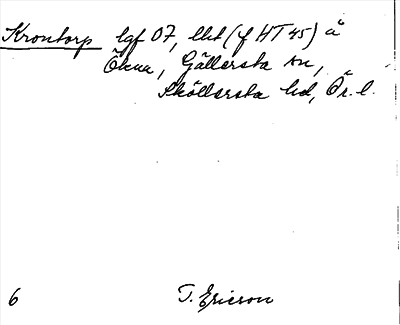 Krontorp lgf 07, llt (f HT 45) å
Ökna, Gällersta sn,
Sköllersta hd, Ör. l.
6 T. Ericson